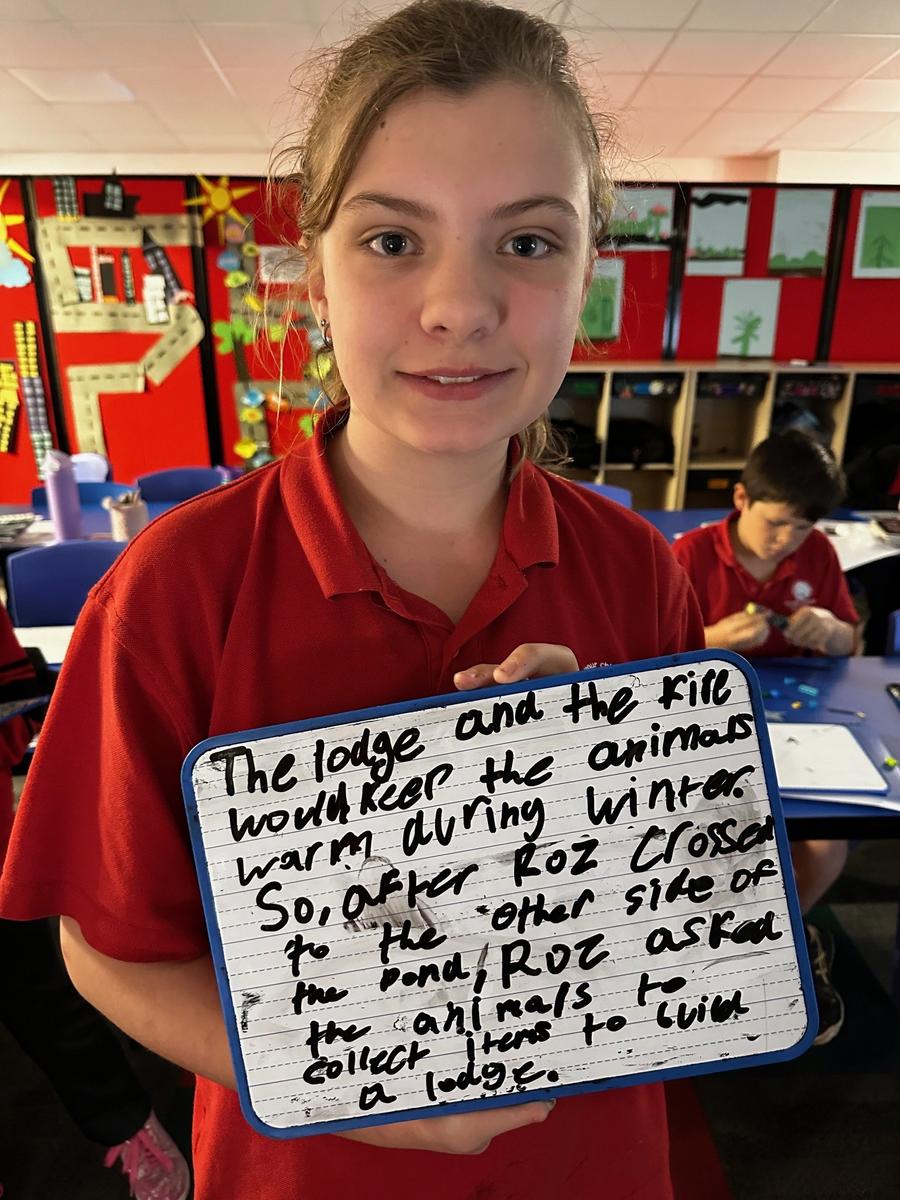 The lodge and the fire
would keep the animals
warm during winter.
So, after Roz crossed
to the other side of
the pond, Roz asked
the animals to
collect items to build
a lodge.